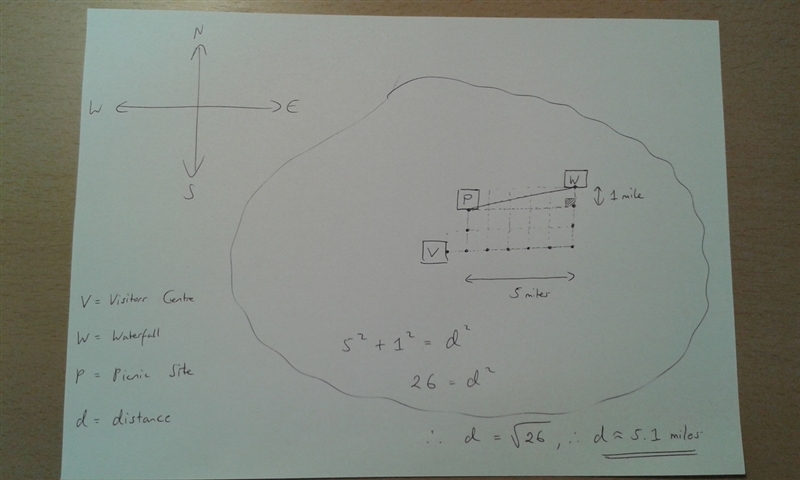 N
W E
S
W
P
1 mile
V
5 miles
V = Visitors Centre
W = Waterfall
P = Picnic Site
d = distance
5² + 1² = d²
26 = d²
∴ d = √26, ∴ d ≈ 5.1 miles